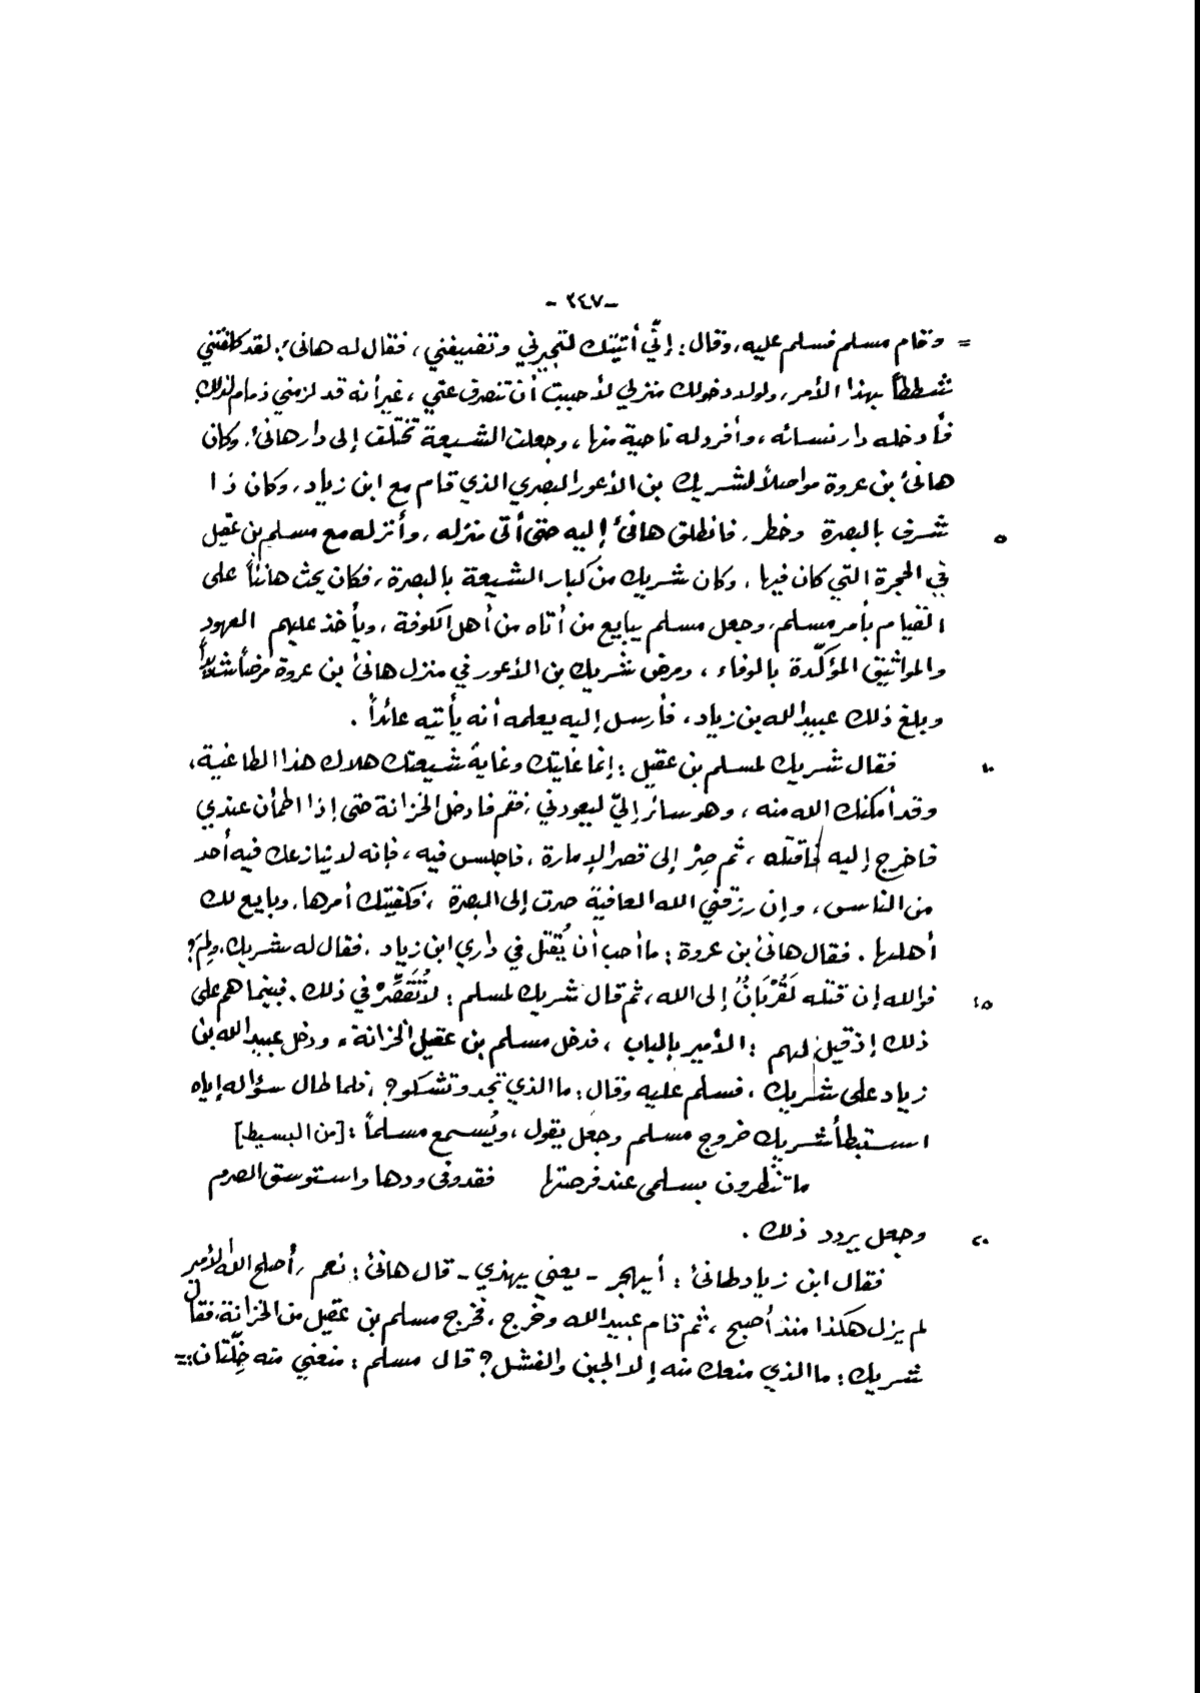 -٢٤٧-
= وقام مسلم فسلم عليه، وقال: إنّي أتيتك لتجيرني وتضيفني، فقال له هانئ: لقد كلفتني
شططاً بهذا الأمر، ولولا دخولك منزلي لأحببت أن تنصرف عنّي، غير أنه قد لزمني ذمام لذلك،
فأدخله دار نسائه، وأفرد له ناحية منها، وجعلت الشيعة تختلف إلى دار هانئ، وكان
هانئ بن عروة مواصلاً لشريك بن الأعور البصري الذي قام مع ابن زياد، وكان ذا
٥ شرف بالبصرة وخطر، فانطلق هانئ إليه حتى أتى منزله، وأنزله مع مسلم بن عقيل
في الحجرة التي كان فيها، وكان شريك من كبار الشيعة بالبصرة، فكان يحث هانئاً على
القيام بأمر مسلم، وجعل مسلم يبايع من أتاه من أهل الكوفة، ويأخذ عليهم العهود
والمواثيق المؤكّدة بالوفاء، ومرض شريك بن الأعور في منزل هانئ بن عروة مرضاً شديداً
وبلغ ذلك عبيد الله بن زياد، فأرسل إليه يعلمه أنه يأتيه عائداً.
١٠ فقال شريك لمسلم بن عقيل: إنما غايتك وغاية شيعتك هلاك هذا الطاغية،
وقد أمكنك الله منه، وهو سائر إليّ ليعودني، فقم فادخل الخزانة حتى إذا اطمأن عندي
فاخرج إليه فاقتله، ثم صِرْ إلى قصر الإمارة، فاجلس فيه، فإنه لا ينازعك فيه أحد
من الناس، وإن رزقني الله العافية صرت إلى البصرة، فكفيتك أمرها، وبايع لك
أهلها. فقال هانئ بن عروة: ما أحب أن يُقتل في داري ابن زياد، فقال له شريك: ولِمَ؟
١٥ فوالله إن قتله لَقُرْبَانٌ إلى الله، ثم قال شريك لمسلم: لا تُقَصِّرْ في ذلك. فبينما هم على
ذلك إذ قيل لهم: الأمير بالباب، فدخل مسلم بن عقيل الخزانة، ودخل عبيد الله بن
زياد على شريك، فسلم عليه وقال: ما الذي تجد وتشكو؟، فلما طال سؤاله إياه
استبطأ شريك خروج مسلم وجعل يقول، ويُسمع مسلماً: [من البسيط]
ما تنظرون بسلمى عند فرصتها فقد وفى ودها واستوسق الصرم
٢٠ وجعل يردد ذلك.
فقال ابن زياد لهانئ: أيهجر - يعني يهذي - قال هانئ: نعم، أصلح الله الأمير
لم يزل هكذا منذ أصبح، ثم قام عبيد الله وخرج، فخرج مسلم بن عقيل من الخزانة، فقال
شريك: ما الذي منعك منه إلا الجبن والفشل؟ قال مسلم: منعني منه خِلّتان: =